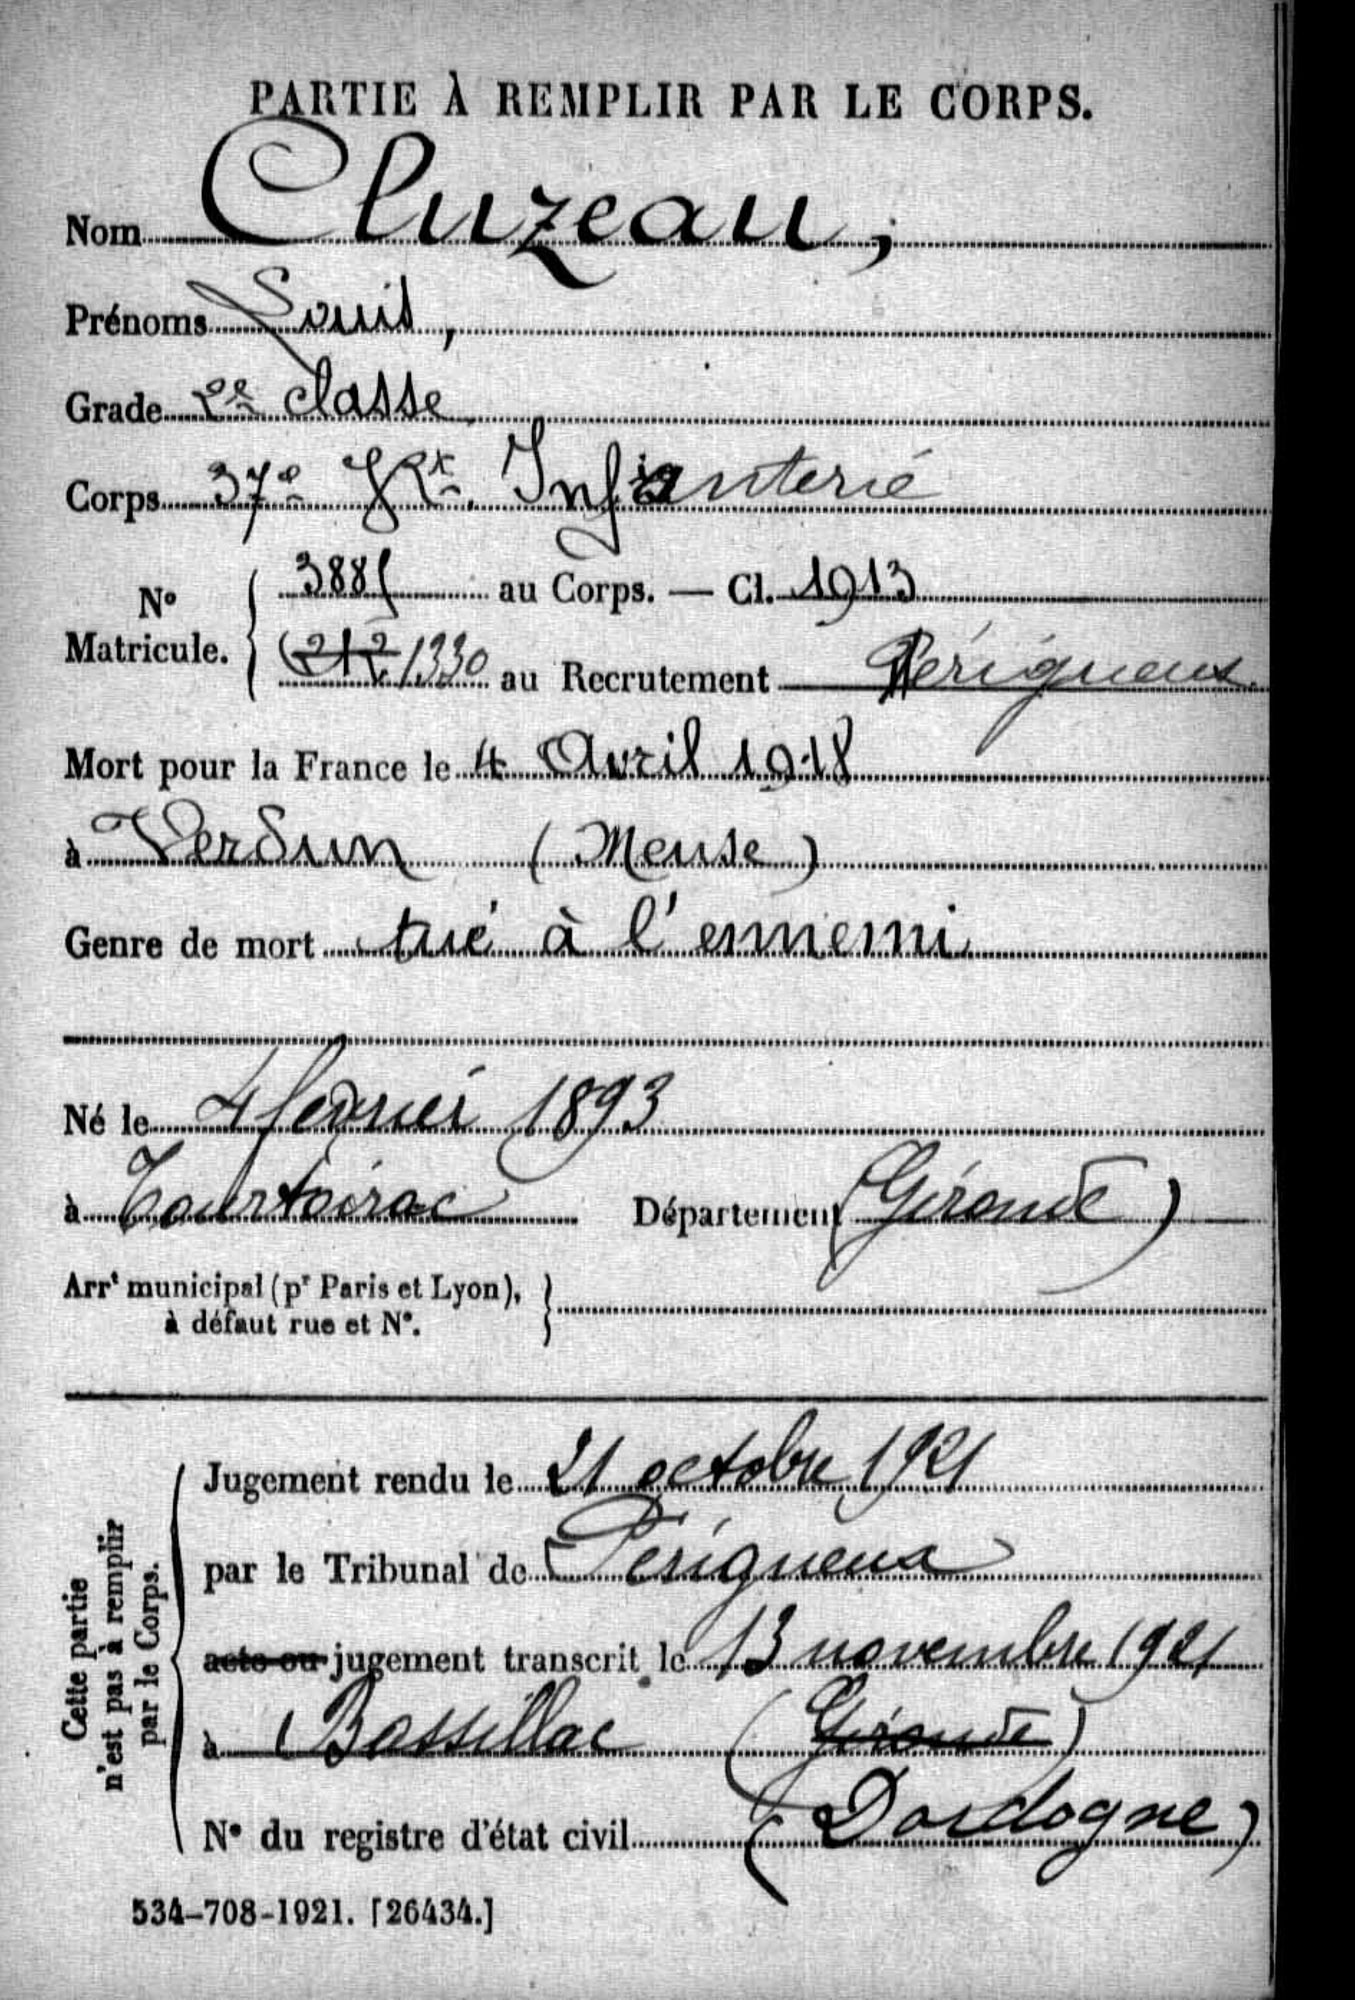 PARTIE À REMPLIR PAR LE CORPS.
Nom Cluzeau,
Prénoms Louis,
Grade 2e classe
Corps 37e Rt. Infanterie
No Matricule. 3885 au Corps. — Cl. 1913
212 1330 au Recrutement Périgueux
Mort pour la France le 4 Avril 1918
à Verdun (Meuse)
Genre de mort tué à l'ennemi
Né le 4 février 1893
à Tourtoirac Département (Gironde)
Arrt municipal (pr Paris et Lyon),
à défaut rue et No.
Cette partie
n'est pas à remplir
par le Corps.
Jugement rendu le 21 octobre 1921
par le Tribunal de Périgueux
acte ou jugement transcrit le 13 novembre 1921
à Bassillac (Gironde)
No du registre d'état civil (Dordogne)
534-708-1921. [26434.]